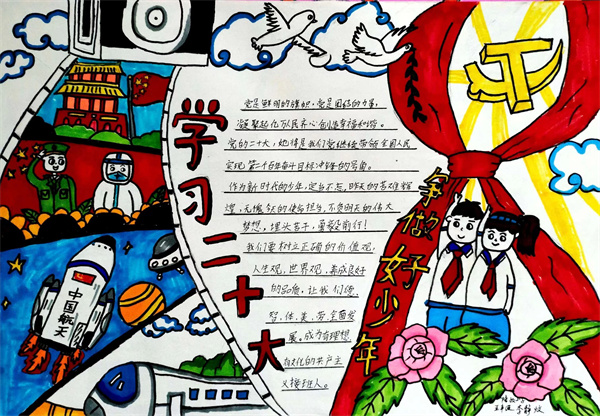 学习二十大
党是鲜明的旗帜,党是团结的力量,
凝聚起亿万人民齐心创造幸福和谐。
党的二十大,她将是我们党继续带领全国人民
实现第二个百年奋斗目标冲锋的号角。
作为新时代的少年,定当不忘昨天的苦难辉
煌,无愧今天的使命担当,不负明天的伟大
梦想,埋头苦干,勇毅前行!
我们要树立正确的价值观,
人生观,世界观,养成良好
的品质,让我们德,
智,体,美,劳,全面发
展,成为有理想
有文化的共产主
义接班人。
争做好少年
中国航天